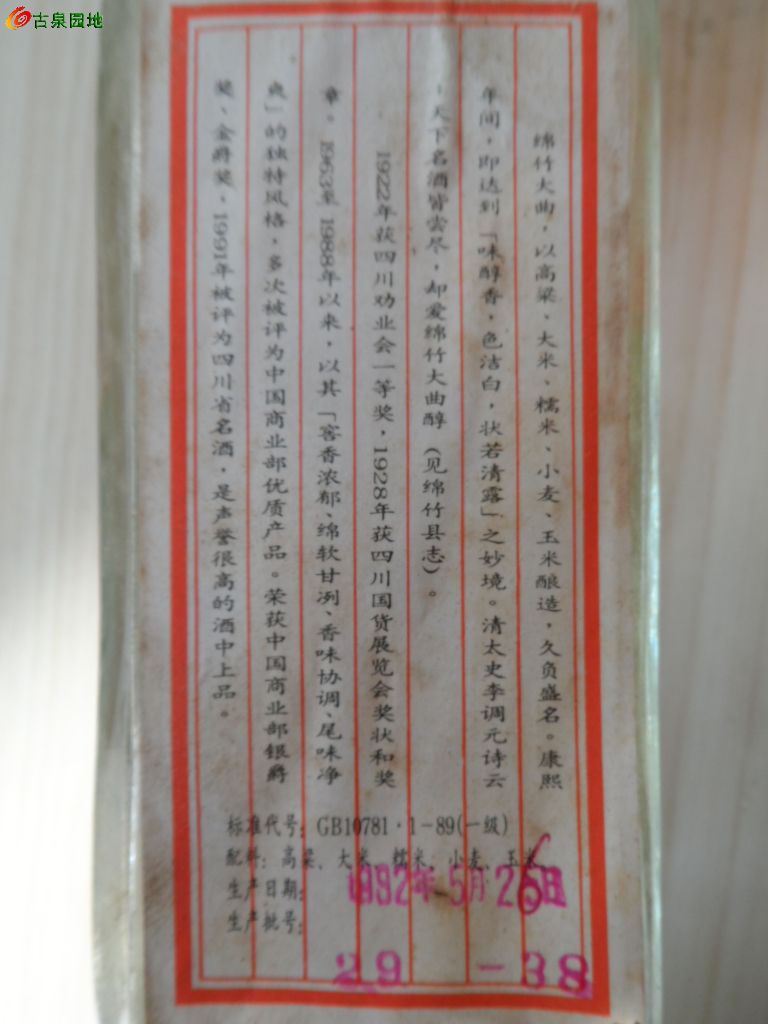 古泉园地
绵竹大曲，以高粱、大米、糯米、小麦、玉米酿造，久负盛名。康熙
年间，即达到「味醇香，色洁白，状若清露」之妙境。清太史李调元诗云
：天下名酒皆尝尽，却爱绵竹大曲醇（见绵竹县志）。
1922年获四川劝业会一等奖，1928年获四川国货展览会奖状和奖
章。1963至1988年以来，以其「窖香浓郁、绵软甘冽、香味协调、尾味净
爽」的独特风格，多次被评为中国商业部优质产品。荣获中国商业部银爵
奖、金爵奖，1991年被评为四川省名酒，是声誉很高的酒中上品。
标准代号：GB10781·1-89(一级)
配料：高粱、大米、糯米、小麦、玉米
生产日期：1992年5月26日
生产批号：
29-38